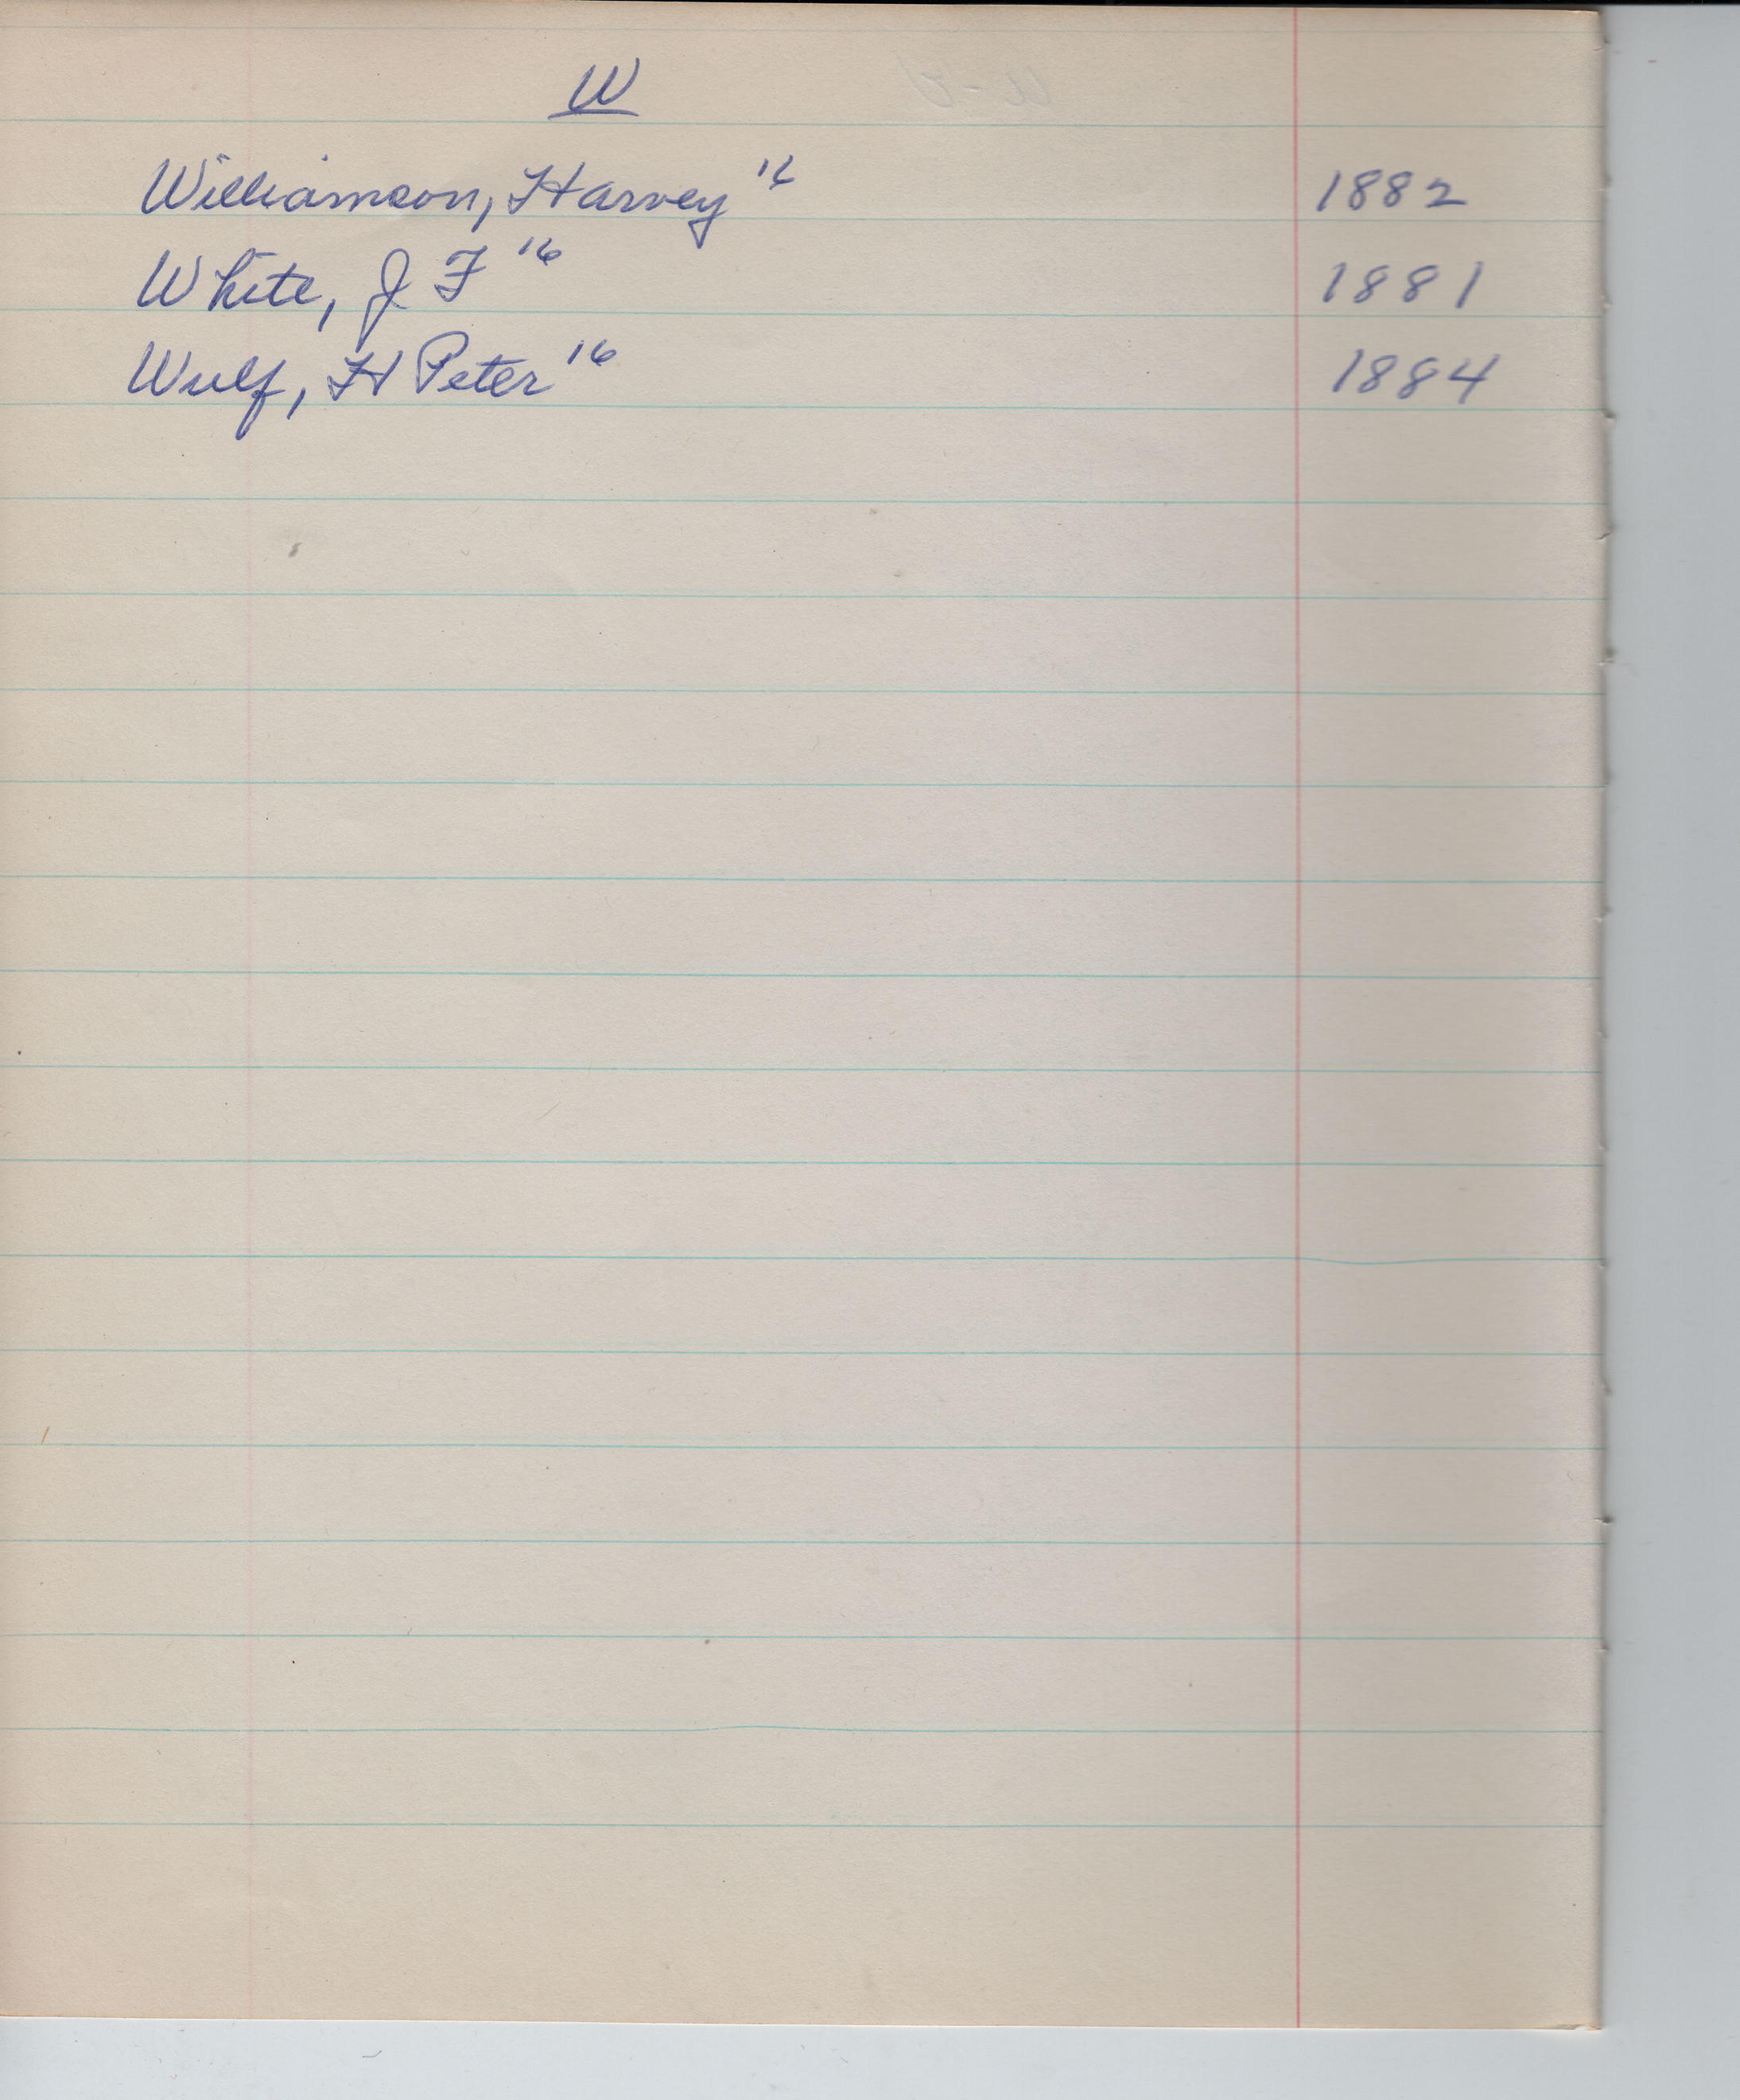 W
Williamson, Harvey 16 1882
White, J F 16 1881
Wulf, H Peter 16 1884